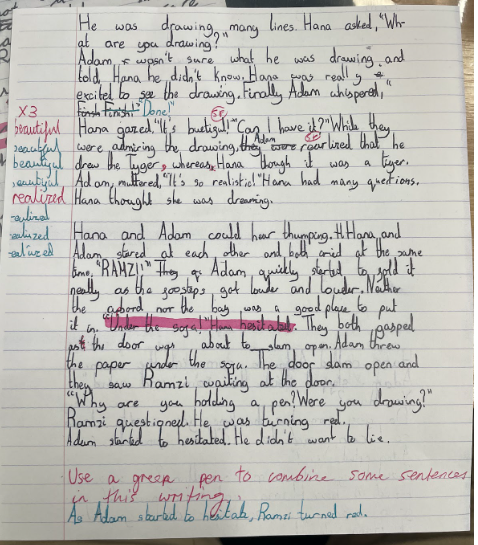 He was drawing many lines. Hana asked, "Wh-
at are you drawing?"
Adam, wasn't sure what he was drawing. and
told Hana he didn't know. Hana was really
excited to see the drawing. Finally Adam whispered,"
Finish "Done!"
X3
beautiful
beautiful
beautiful
beautiful
realized
realized
realized
realized
Hana gazed. "It's butiful!" "Can I have it?" While they
sp
were admiring the drawing, they Adam were rearlized that he
sp
drew the Tiger, whereas, Hana though it was a tiger.
Adam, muttered, "It's so realistic!" Hana had many questions.
Hana thought she was dreaming.
Hana and Adam could hear thumping. Hana and
Adam stared at each other and both cried at the same
time, "RAMZI!" They Adam quickly started to fold it
neatly as the foosteps got louder and louder. Neither
the nor the bag was a good place to put
it in. "Under the sofa!" Hana hesitated. They both gasped
as the door was about to slam open. Adam threw
the paper under the sofa. The door slam open and
they saw Ramzi waiting at the door.
"Why are you holding a pen? Were you drawing?"
Ramzi questioned. He was turning red.
Adam started to hesitated. He didn't want to lie.
Use a green pen to combine some sentences
in this writing.
As Adam started to hesitate, Ramzi turned red.